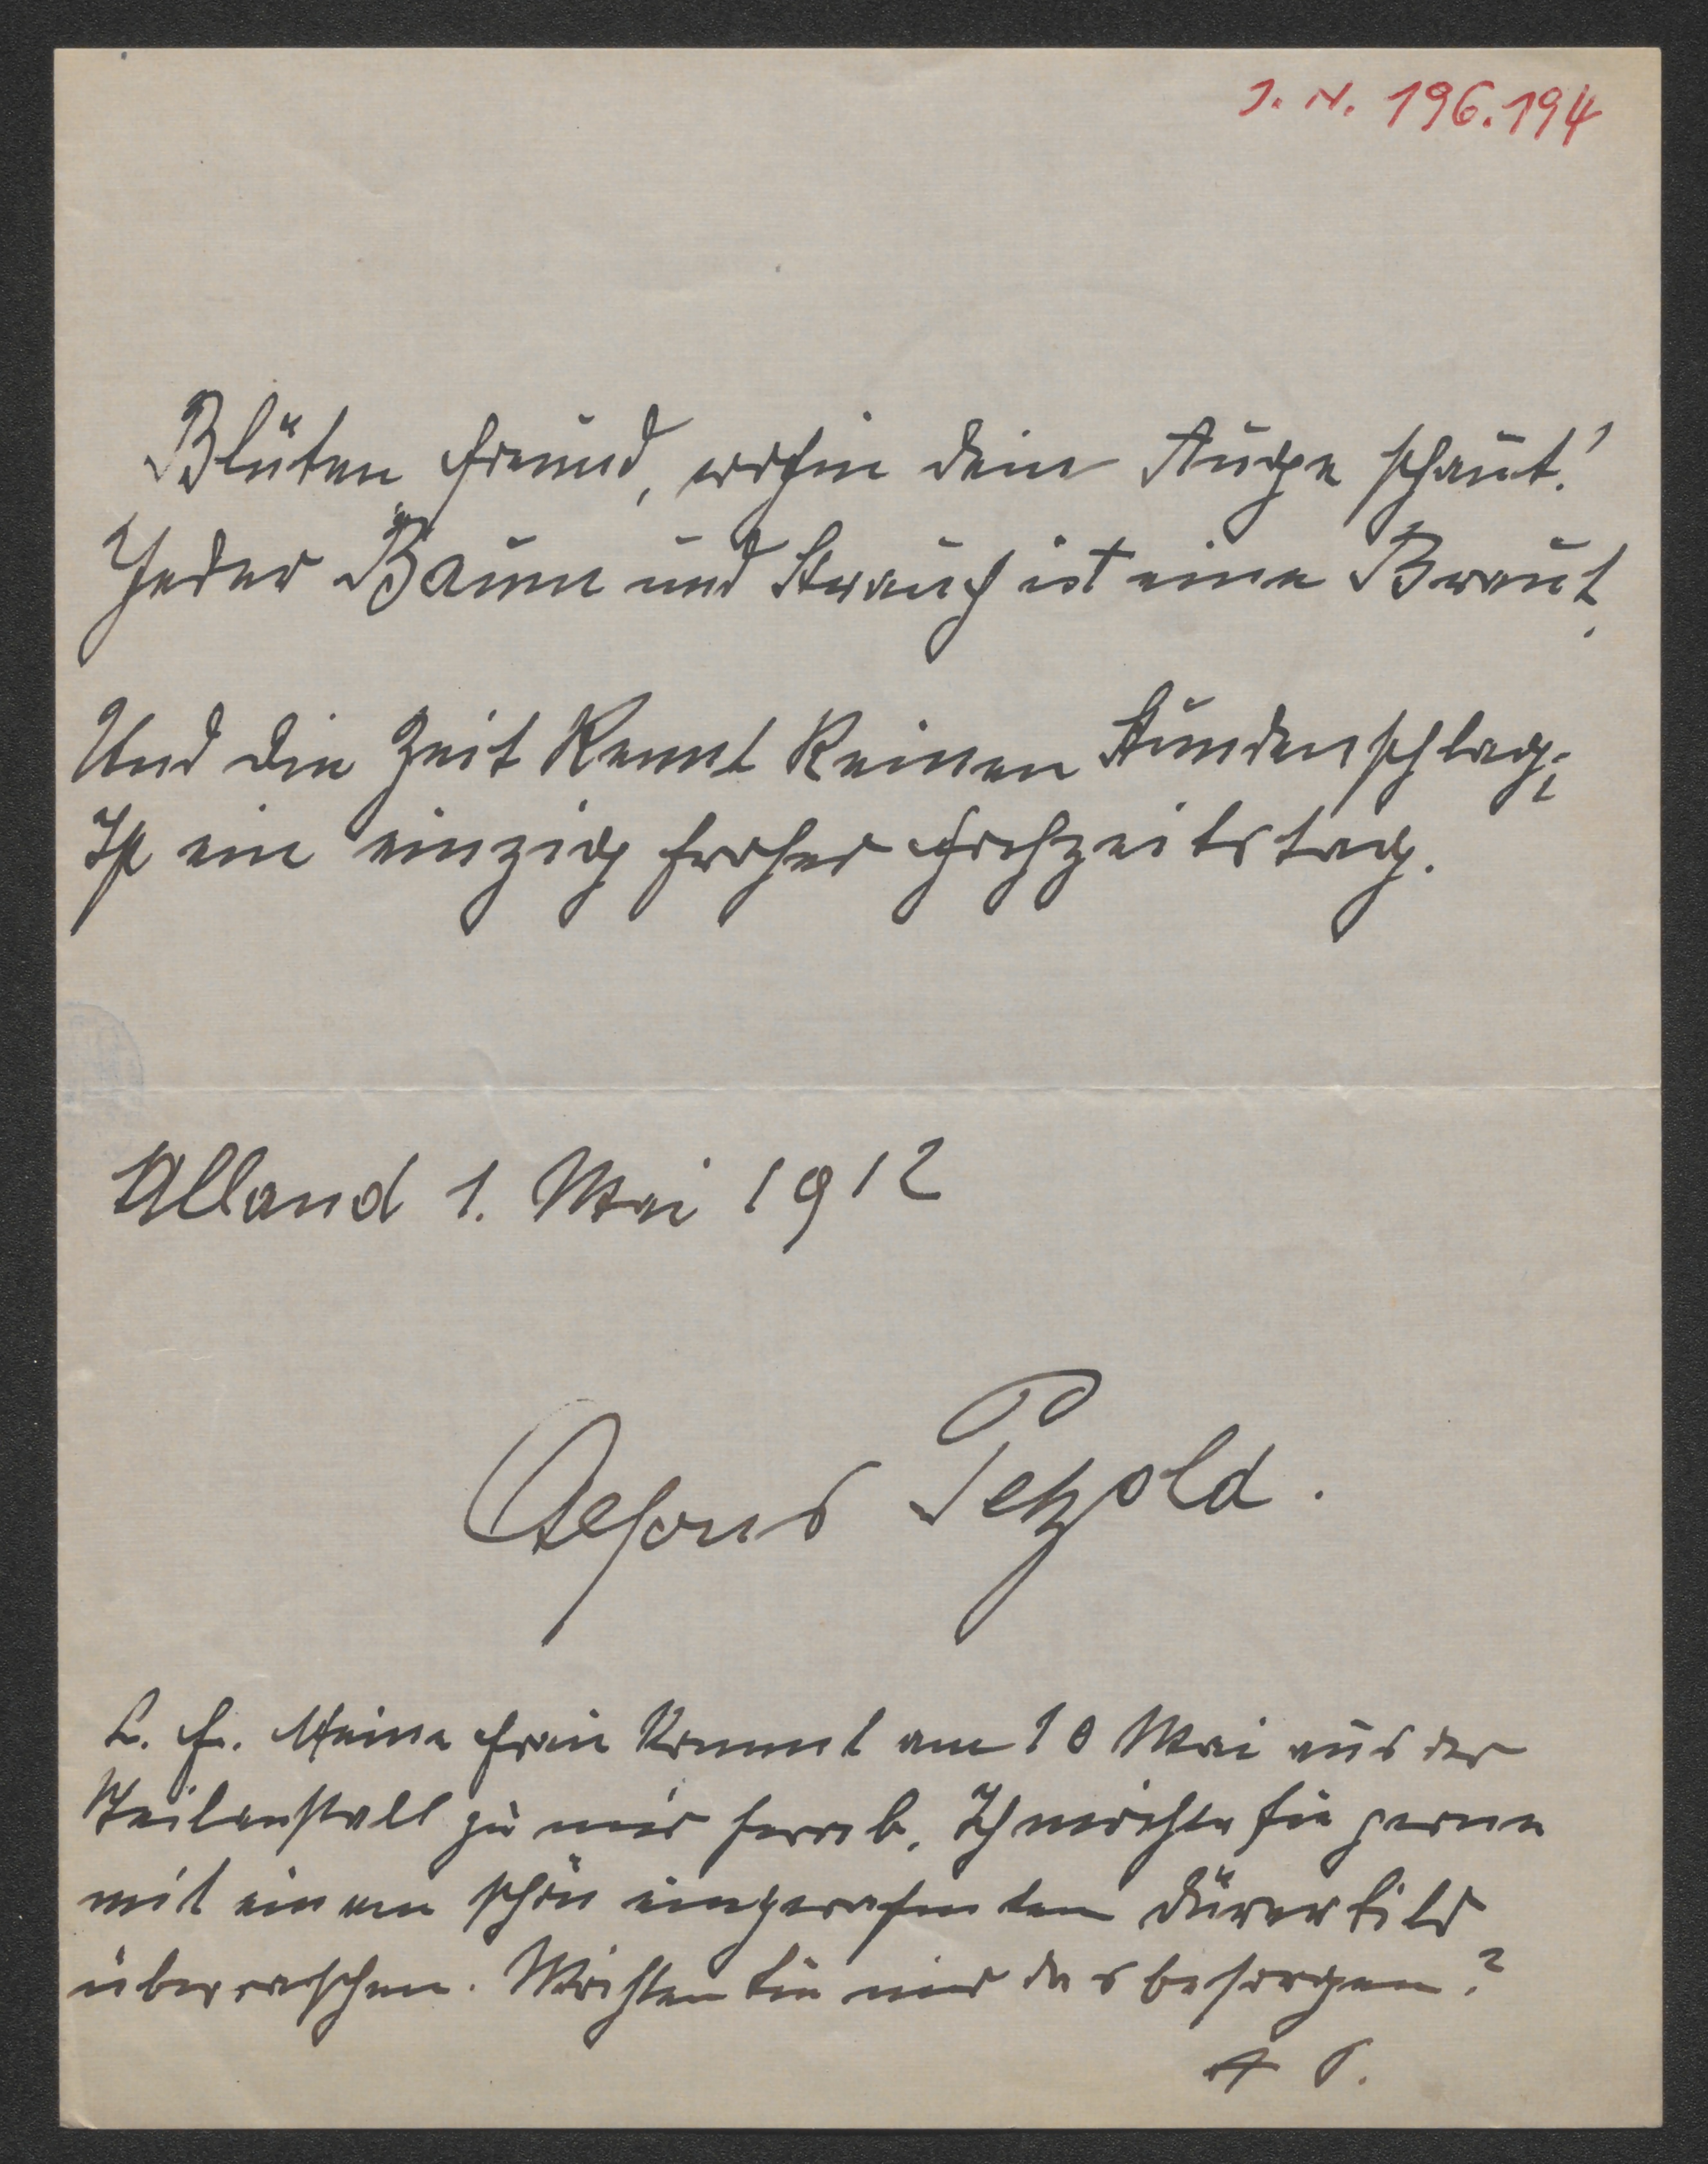 J. N. 196.194
Blüten, Freund, wohin dein Auge schaut!
Jeder Baum und Strauch ist eine Braut,
Und die Zeit kennt keinen Stundenschlag;
Ist ein einzig froher Hochzeitstag.
Alland 1. Mai 1912
Alfons Petzold.
L. F. Meine Frau kommt am 10 Mai aus der
Heilanstalt zu mir herab. Ich möchte sie gerne
mit einem schön eingerahmten Dürerbild
überraschen. Möchten Sie mir das besorgen?
A P.